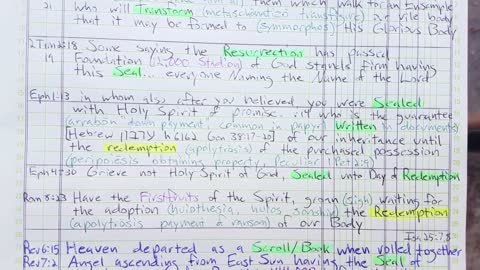 them which walk for an Ensample
21 who will Transform (metaschematizo transfigure) our vile body
that it may be formed to (symmorphos) His Glorious Body
2 Tim 2:18 Some saying the Resurrection has passed
19 Foundation (12,000 Stadion) of God stands firm having
this Seal... everyone Naming the Name of the Lord
Eph 1:13 in whom also after you believed, you were Sealed
with Holy Spirit of promise. 14 who is the guarantee
(arrabon down payment, common in papyri written in documents)
[Hebrew ערבון Gen 38:17-20] of our inheritance until
the redemption (apolytrosis) of the purchased possession
(peripoiesis obtaining property, Peculiar 1 Pet 2:9)
Eph 4:30 Grieve not Holy Spirit of God, Sealed unto Day of Redemption
Rom 8:23 Have the Firstfruits of the Spirit, groan (sigh) waiting for
the adoption (huiothesia, huios sonship) the Redemption
(apolytrosis payment a ransom) of our Body
Isa 25:7,8
Rev 6:15 Heaven departed as a Scroll/Book when rolled together
Rev 7:2 Angel ascending from East Sun having the Seal of